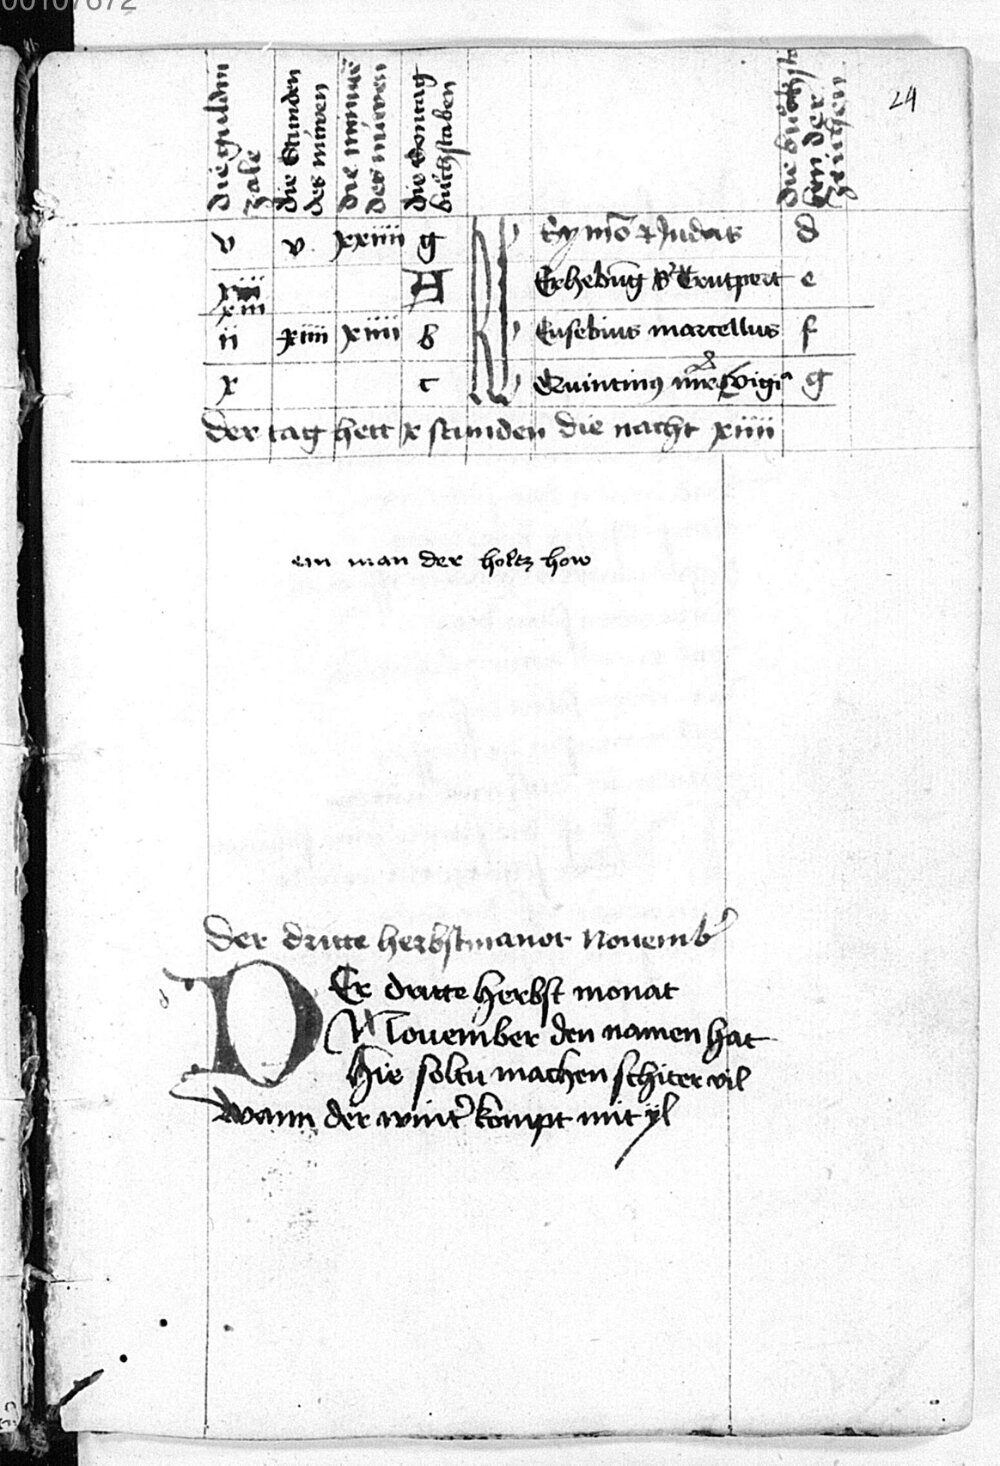 00107672
24
die guldin zale
die stunden des niwen
die minuten des niwen
die Sontag buchstaben
die buchstaben der zeichen
v v xxiiii g Symon et Judas d
xiii A Erhebung S Trutpert e
ii xiiii xiiii b Eusebius marcellus f
x c Quintinus mr vigi g
der tag hett x stunden die nacht xiiii
ein man der holtz how
der dritte herbstmanot Novemb
DEr dritte herbst monat
November den namen hat
Hie soltu machen schiter vil
wann der wint kompt mit yl